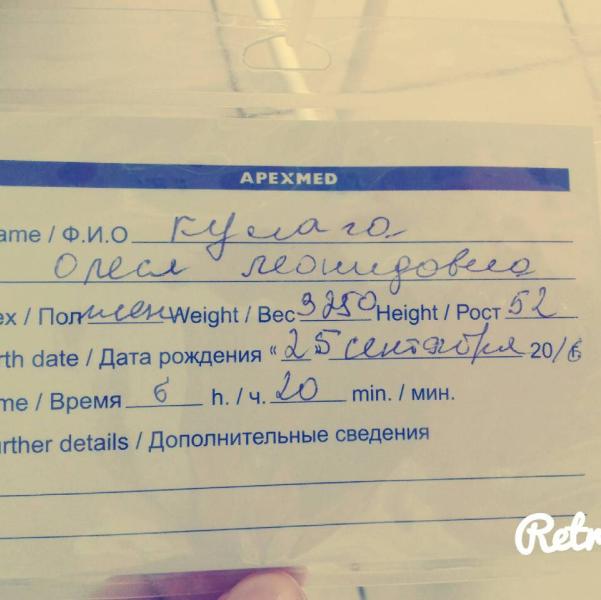 APEXMED
ame / Ф.И.О Кулага
Олеся Леонидовна
ex / Пол жен Weight / Вес 3250 Height / Рост 52
rth date / Дата рождения “ 25 сентября 2016
me / Время 6 h. / ч. 20 min. / мин.
urther details / Дополнительные сведения
Retr